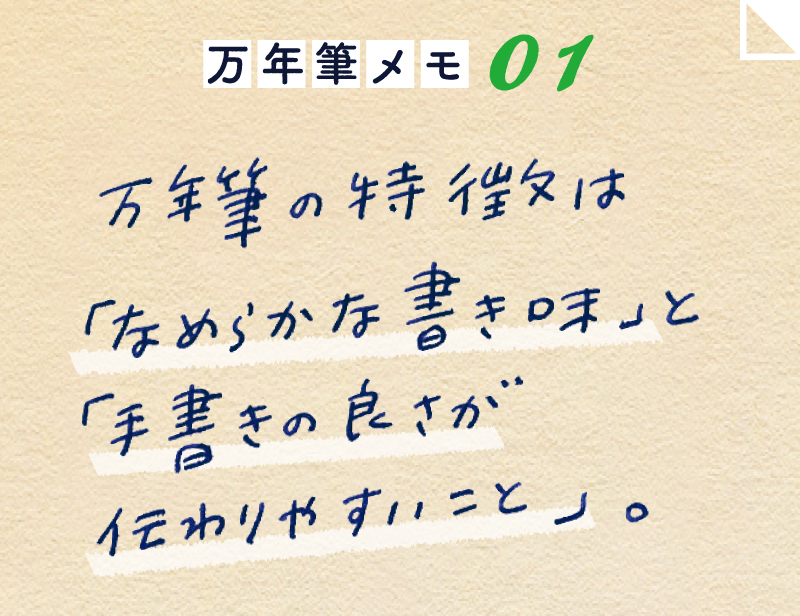 万年筆メモ 01
万年筆の特徴は
「なめらかな書き味」と
「手書きの良さが
伝わりやすいこと」。